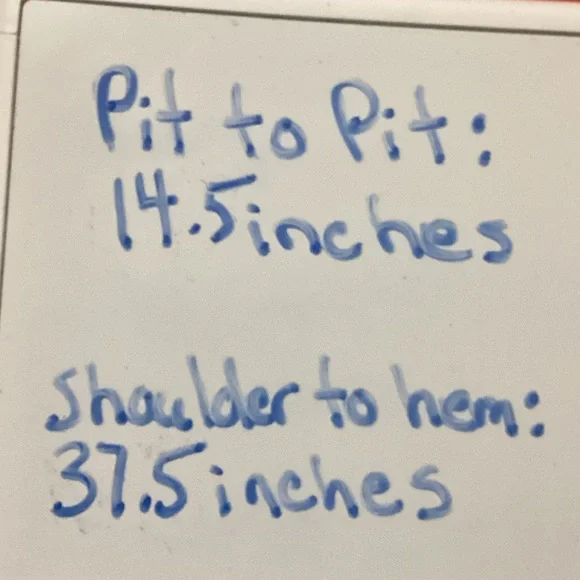 Pit to Pit:
14.5 inches
Shoulder to hem:
37.5 inches